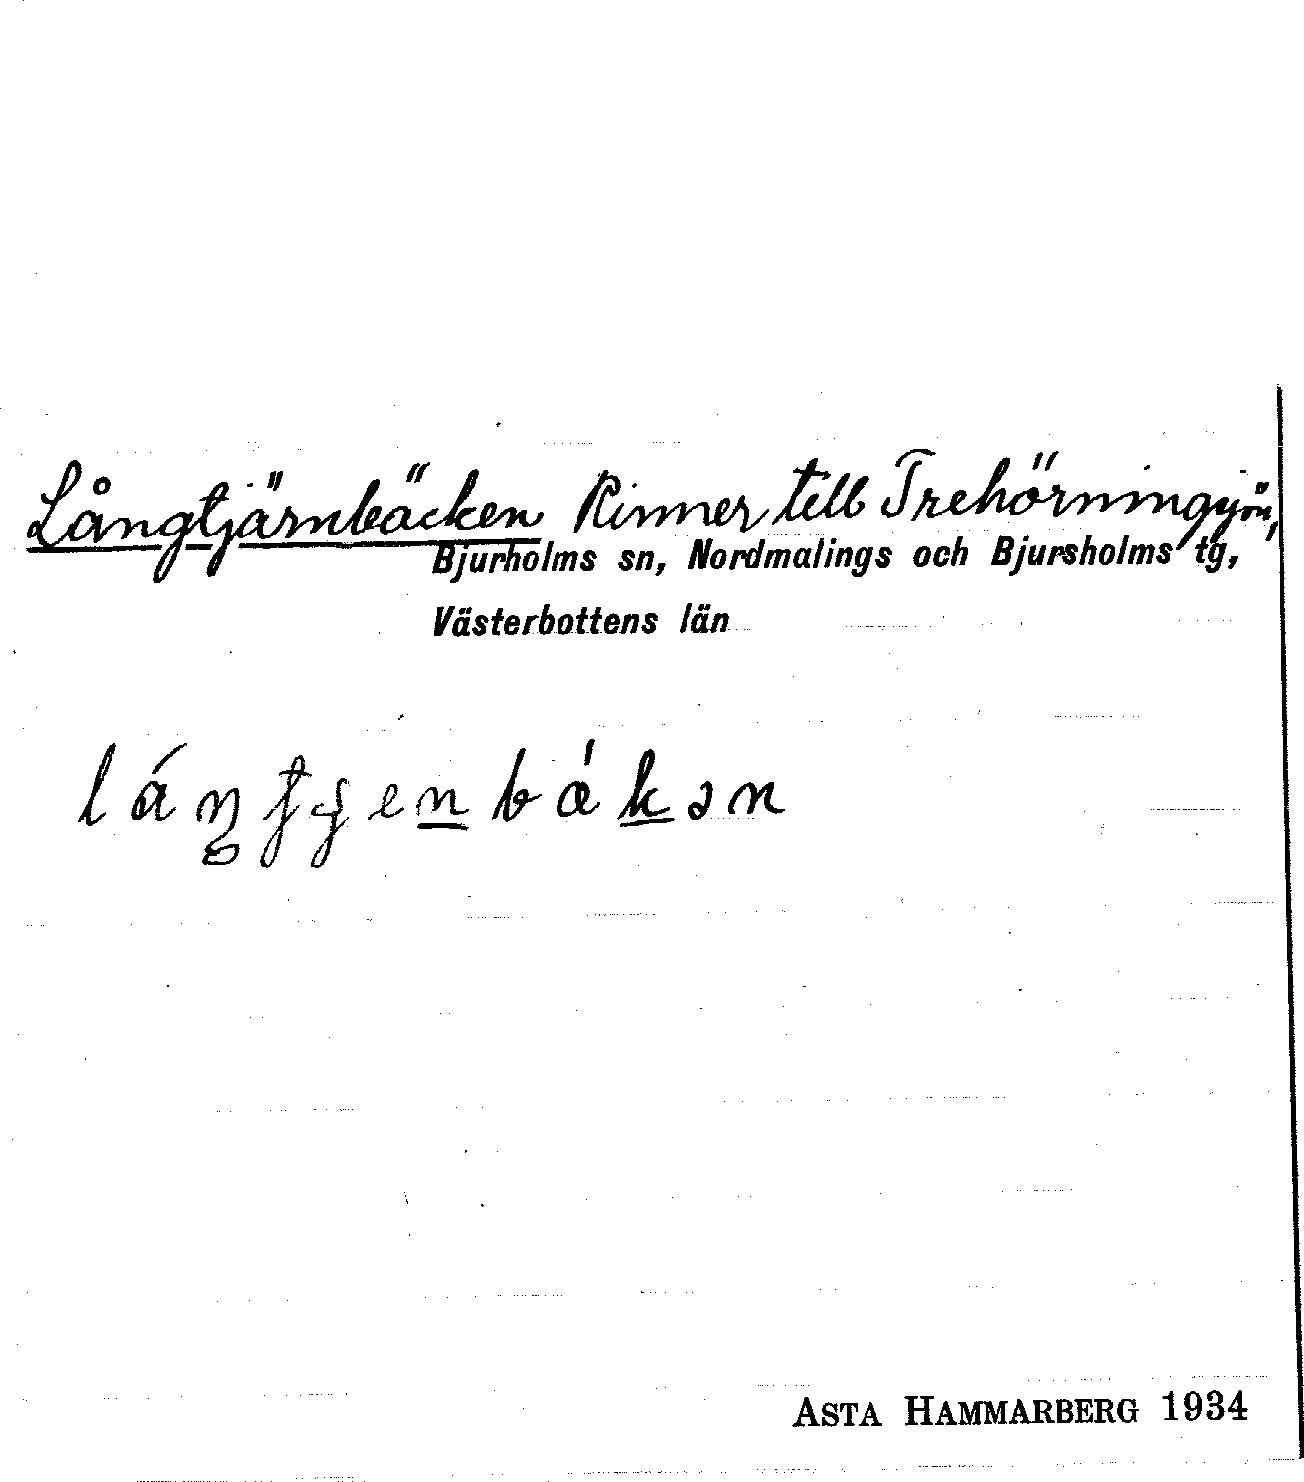 Långtjärnbäcken Rinner till Trehörningsjön,
Bjurholms sn, Nordmalings och Bjursholms tg,
Västerbottens län
ASTA HAMMARBERG 1934